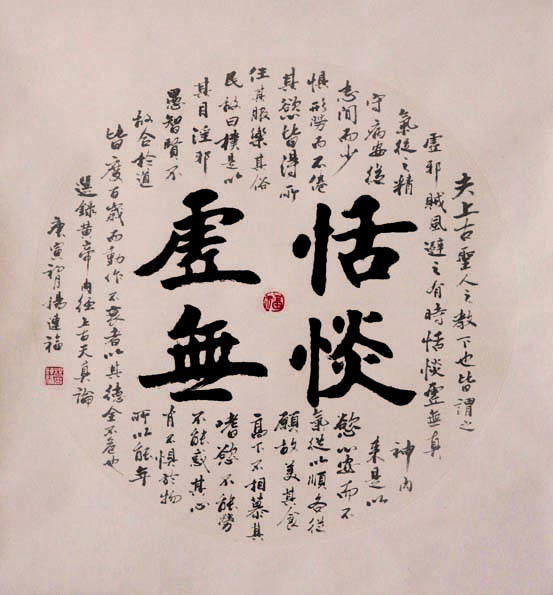 恬惔
虛無
夫上古聖人之教下也皆謂之
虛邪賊風避之有時恬惔虛無真
氣從之精
神内
守病安從
來是以
志閒而少
慾心安而不
懼形勞而不倦
氣從以順各從
其慾皆得所
願故美其食
任其服樂其俗
高下不相慕其
民故曰樸是以
嗜慾不能勞
其目淫邪
不能惑其心
愚智賢不
肖不懼於物
故合於道
所以能年
皆度百歲而動作不衰者以其德全不危也
選錄黄帝内經上古天真論
庚寅 楊連福
福